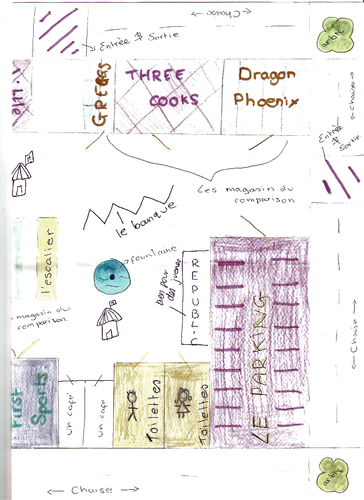 ← Chaise →
arbre
Entrée & Sortie
GREEGS
THREE
COOKS
Dragon
Phoenix
← chaise →
Entrée
&
Sortie
Les magasin du
comparison
le banque
l'escalier
fountaine
bien pour
des jeunes
REPUBLIC
magasin du
comparison
LE PARKING
← Chaise →
First
Sports
un café
un café
Toilettes
Toilettes
← Chaise →
arbre